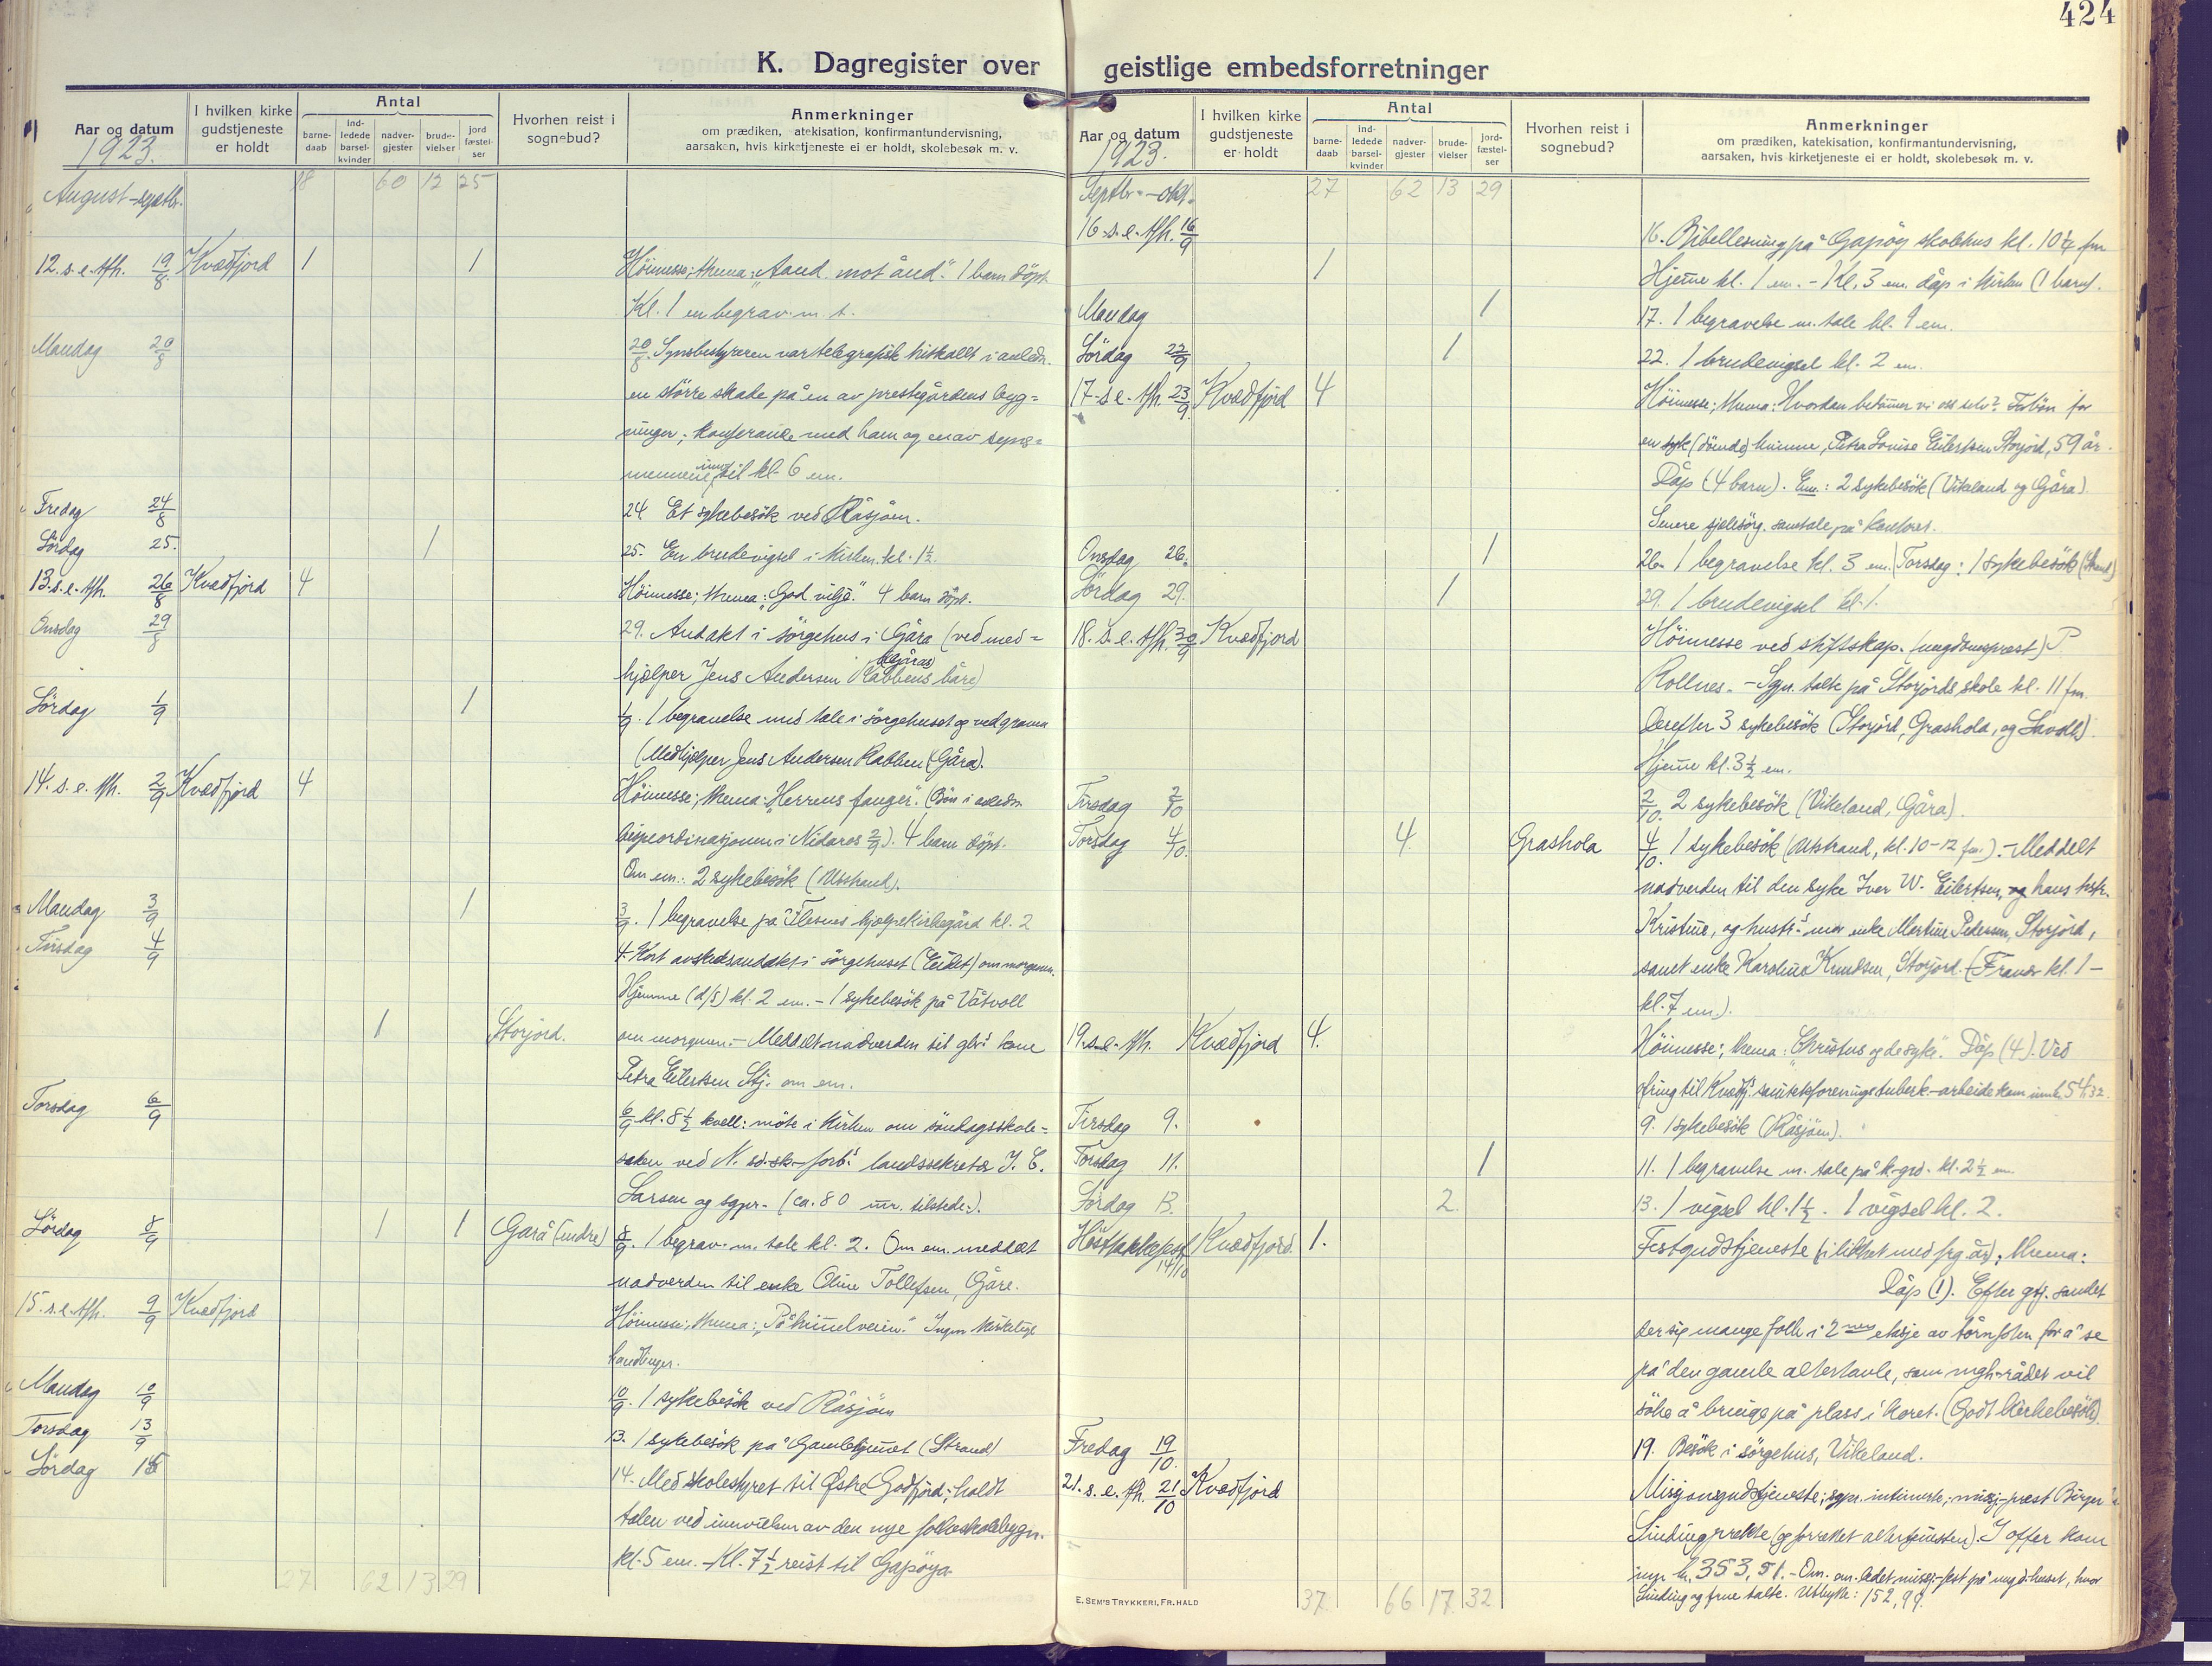 424
K. Dagregister over geistlige embedsforretninger
Aar og datum
1923.
I hvilken kirke gudstjeneste er holdt
Antal
barne-daab
ind-ledede barsel-kvinder
nadver-gjester
brude-vielser
jord fæstel-ser
Hvorhen reist i sognebud?
Anmerkninger
om prædiken, atekisation, konfirmantundervisning,
aarsaken, hvis kirketjeneste ei er holdt, skolebesøk m. v.
August-septbr. 18 60 12 25
12. s. e. tfh. 19/8 Kvæfjord 1 1 Höimesse; thema: "Aand mot ånd". 1 barn döpt.
Kl. 1 en begrav. m. t.
Mandag 20/8 20/8. Synsbestyreren var telegrafisk hitkallt i anledn.
en större skade på en av prestegårdens byg=
ninger; konferanse med ham og en av
mennene til kl. 6 em.
Fredag 24/8 24 Et sykebesök ved Råsjöen.
Lördag 25. 1 25. En brudevigsel i kirken kl. 1½.
13. s. e. tfh. 26/8 Kvæfjord 4 Höimesse; thema: "God vilje". 4 barn döpt.
Onsdag 29/8 29. Andakt i sörgehus i Gåra (ved med=
hjelper Jens Andersen Rabbens båre)
Lördag 1/9 1 1/9. 1 begravelse med tale i sörgehuset og ved graven
(Medhjelper Jens Andersen Rabben (Gåra).
14. s. e. tfh. 2/9 Kvæfjord 4 Höimesse; thema: "Herrens fanger". (Bön i anledn.
bispeordinasjonen i Nidaros 2/9). 4 barn döpt.
Om em.: 2 sykebesök (Utstrand).
Mandag 3/9 1 3/9. 1 begravelse på Flesnes hjelpekirkegård kl. 2
Tirsdag 4/9 4. Kort avskedsandakt i sörgehuset (Eidet) om morgenen.
Hjemme (d/s) kl. 2 em. - 1 sykebesök på Våtvoll
1 Storjord. om morgenen. - Meddelt nadverden til kone
Petra Eilertsen Stj. om em.
Torsdag 6/9 6/9 kl. 8½ kvell: möte i kirken om söndagsskole=
saken ved N. sd.-sk.-forb.s landssekretær J. E.
Larsen og sgpr. - (ca. 80 tilstede.).
Lördag 8/9 1 1 Gårå (indre) 8/9. 1 begrav. m. tale kl. 2. Om em. meddelt
nadverden til enke Oline Tollefsen, Gåre.
15. s. e. tfh. 9/9 Kvæfjord Höimesse; thema: "På himmelveien." Ingen kirkelige
handlinger.
Mandag 10/9 10/9. 1 sykebesök ved Råsjöen
Torsdag 13/9 13. 1 sykebesök på Gamlehjemmet (Strand)
Lördag 15 14. Med skolestyret til Østre Godfjord; holdt
talen ved innvielsen av den nye folkeskolebygn.
kl. 5 em. - Kl. 7½ reist til Gapöya
27 62 13 29
Aar og datum
1923.
I hvilken kirke gudstjeneste er holdt
Antal
barne-daab
ind-ledede barsel-kvinder
nadver-gjester
brude-vielser
jord-fæstel-ser
Hvorhen reist i sognebud?
Anmerkninger
om prædiken, katekisation, konfirmantundervisning,
aarsaken, hvis kirketjeneste ei er holdt, skolebesøk m. v.
Septbr. - okt. 27 62 13 29
16. s. e. tfh. 16/9 16. Bibellesning på Gapöy skolehus kl. 10¼ fm
1 Hjemme kl. 1 em. - Kl. 3 em. dåp i kirken (1 barn).
Mandag 1 17. 1 begravelse m. tale kl. 1 em.
Lördag 22/9 1 22. 1 brudevigsel kl. 2 em.
17. s. e. tfh. 23/9 Kvæfjord 4 Höimesse; thema: Hvordan bedömmer vi oss selv? Forbön for
en syk (döende) kvinne, Petra Lovise Eilertsen Storjord, 59 år.
Dåp (4 barn). Em.: 2 sykebesök (Vikeland og Gåra).
Senere sjelesörg. samtale på kontoret.
Onsdag 26. 1 26. 1 begravelse kl. 3 em. Torsdag: 1 sykebesök (Strand)
Lördag 29. 1 29. 1 brudevigsel kl. 1.
18. s. e. tfh. 30/9 Kvæfjord Höimesse ved stiftskap. (ungdomsprest) P.
Rollnes. - Sgpr. talte på Storjords skole kl. 11 fm.
Derefter 3 sykebesök (Storjord, Grashola, og Lavoll).
Hjemme kl. 3½ em.
Tirsdag 2/10 2/10. 2 sykebesök (Vikeland, Gåra).
Torsdag 4/10 4 Grashola 4/10. 1 sykebesök (Utstrand, kl. 10-12 fm.). - Meddelt
nadverden til den syke Iver W. Eilertsen, og hans hstr.
Kristine, og hustr.s mor enke Martine Pedersen, Storjord,
samt enke Karoline Knutsen, Storjord. (Fravær kl. 1 -
kl. 7 em.).
19. s. e. tfh. Kvæfjord 4. Höimesse; thema: "Christus og de syke". Dåp (4). Ved
ofring til Kvæfj. sanitetsforenings tuberk.-arbeide kom inn kr. 54,32.
Tirsdag 9. 9. 1 sykebesök (Råsjöen).
Torsdag 11. 1 11. 1 begravelse m. tale på k.-grd. kl. 2½ em.
Lördag 13. 2. 13. 1 vigsel kl. 1½. 1 vigsel kl. 2.
Hösttakkefest 14/10 Kvæfjord. 1. Festgudstjeneste (i likhet med frg. år); thema:
Dåp (1). Efter gtj. samlet
der sig mange folk i 2nen etasje av tårnfoten for å se
på den gamle altertavle, som mgh.rådet vil
söke å bringe på plass i koret. (Godt kirkebesök)
Fredag 19/10 19. Besök i sörgehus, Vikeland.
21. s. e. tfh. 21/10 Kvæfjord Misjonsgudstjeneste; sgpr. intimerte; misj.-prest Birger
Sinding prekte (og forrettet altertjenesten). I offer kom
inn kr. 353,51. - Om. em. ledet misj.-fest på ungd.huset, hvor
Sinding og frue talte. Utbytte: 152,99.
E. SEM'S TRYKKERI, FR.HALD
37. 66 17 32